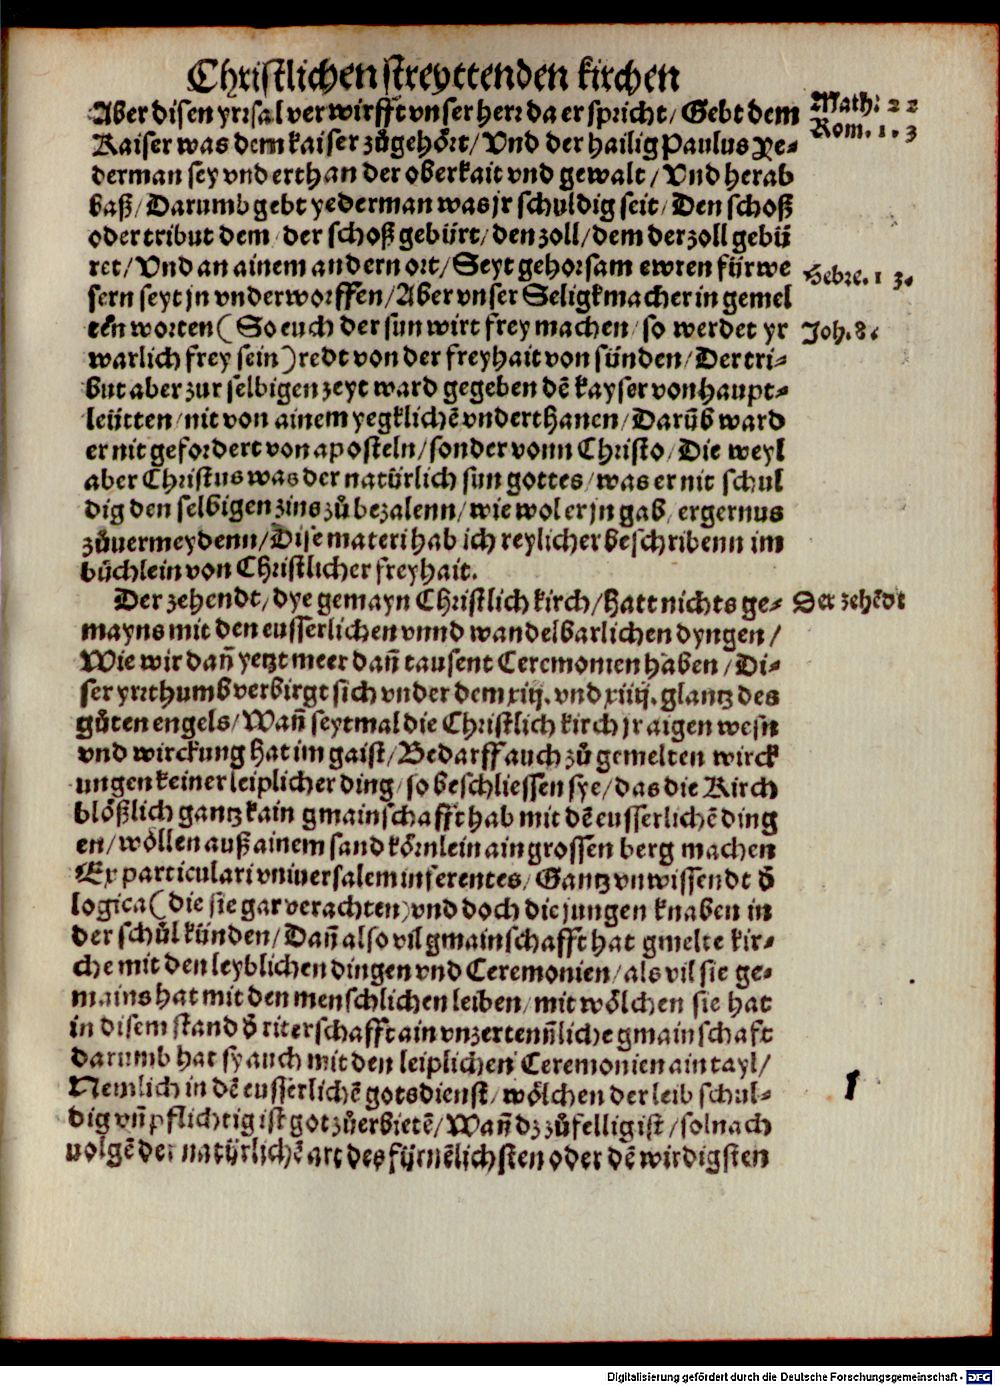 Christlichen streyttenden kirchen
Aber disen yrrsal verwirfft vnser herr da er spricht/ Gebt dem
Math. 22
Kaiser was dem kaiser zůgehőrt/ Vnd der hailig Paulus Ye⸗
Rom. 1.3
derman sey vnderthan der oberkait vnd gewalt/ Vnd herab
baß/ Darumb gebt yederman was jr schuldig seit/ Den schoß
oder tribut dem/ der schoß gebürt/ den zoll/ dem der zoll gebü
ret/ Vnd an ainem andern ort/ Seyt gehorsam ewren fürwe
Hebre. 13.
sern seyt jn vnderworffen/ Aber vnser Seligkmacher in gemel
ten worten (So euch der sun wirt frey machen/ so werdet yr
Joh. 8.
warlich frey sein) redt von der freyhait von sünden/ Der tri⸗
but aber zur selbigen zeyt ward gegeben dē kayser von haupt⸗
leütten/ nit von ainem yegklichē vnderthanen/ Darūb ward
er nit gefordert von aposteln/ sonder vonn Christo/ Die weyl
aber Christus was der natürlich sun gottes/ was er nit schul
dig den selbigen zins zů bezalenn/ wie wol er jn gab/ ergernus
zůuermeydenn/ Dise materi hab ich reylicher beschribenn im
büchlein von Christlicher freyhait.
Der zehendt/ dye gemayn Christlich kirch/ hatt nichts ge⸗
Der zehēdt
mayns mit den eusserlichen vnnd wandelbarlichen dyngen/
Wie wir dañ yetzt meer dañ tausent Ceremonien haben/ Di⸗
ser yrrthumb verbirgt sich vnder dem xiij. vnd xiiij. glantz des
gůten engels/ Wañ seytmal die Christlich kirch jr aigen wesn
vnd wirckung hat im gaist/ Bedarff auch zů gemelten wirck
ungen keiner leiplicher ding/ so beschliessen sye/ das die Kirch
blößlich gantz kain gmainschafft hab mit dē eusserlichē ding
en/ wőllen auß ainem sandkőrnlein ain grossen berg machen
Ex particulari vniuersalem inferentes/ Gantz vnwissendt ð
logica (die sie gar verachten) vnd doch die jungen knaben in
der schůl künden/ Dañ also vil gmainschafft hat gmelte kir⸗
che mit den leyblichen dingen vnd Ceremonien/ als vil sie ge⸗
mains hat mit den menschlichen leiben/ mit wőlchen sie hat
in disem stand ð riterschafft ain vnzertenñliche gmainschaft
darumb hat sy auch mit den leiplichen Ceremonien ain tayl/
Nemlich in dē eusserlichē gotsdienst/ wőlchen der leib schul⸗
dig vñ pflichtig ist got zůerbietē/ Wañ dz zůfellig ist/ sol nach
uolgē der natürlichē art des fürnēlichsten oder dē wirdigsten
Digitalisierung gefördert durch die Deutsche Forschungsgemeinschaft - DFG